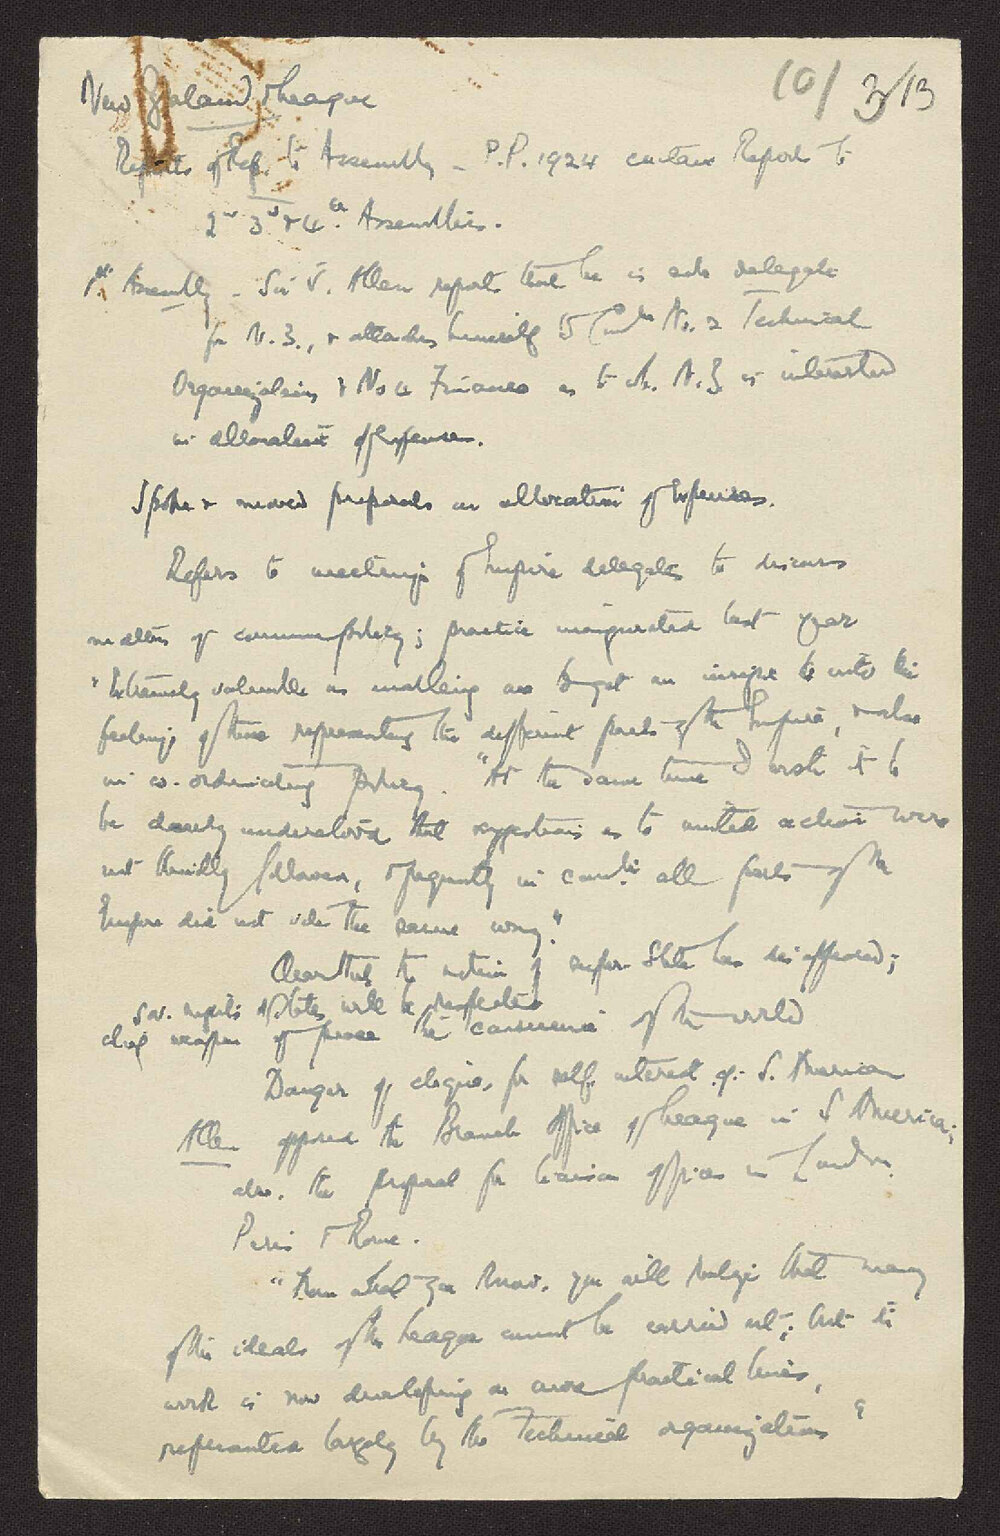 (0) 3/13
New Zealand & League
Reports of Rep. to Assembly – P.P. 1924 contain Reports to
2nd 3rd & 4th Assemblies.
1st Assembly – Sir J. Allen reports that he is sole delegate
for N.Z., & attaches himself to No. 2 Technical
Organizations & No 4 Finance as to wh. N.Z is interested
in allocation of Expenses.
Spoke & moved proposals on allocation of Expenses.
Refers to meetings of Empire delegates to discuss
matters of common policy; practice inaugurated last year
"Extremely valuable as enabling one to get an insight into the
feelings of those representing the different parts of the Empire, & also
in co-ordinating policy. "At the same time I wish it to
be clearly understood that suggestions as to united action were
not followed, & frequently in all parts of the
Empire did not vote the same way."
the notion of super State has disappeared;
Sov. rights of States will be
chief weapon of peace the conscience of the world
Danger of cliques for self interest e.g. S. American
Allen opposed the Branch Office of League in S America;
also the proposal for liaison offices in London
Paris & Rome.
"From what you know, you will realize that many
of the ideals of the League cannot be carried out; but its
work is now developing on more practical lines,
represented largely by the Technical organizations"